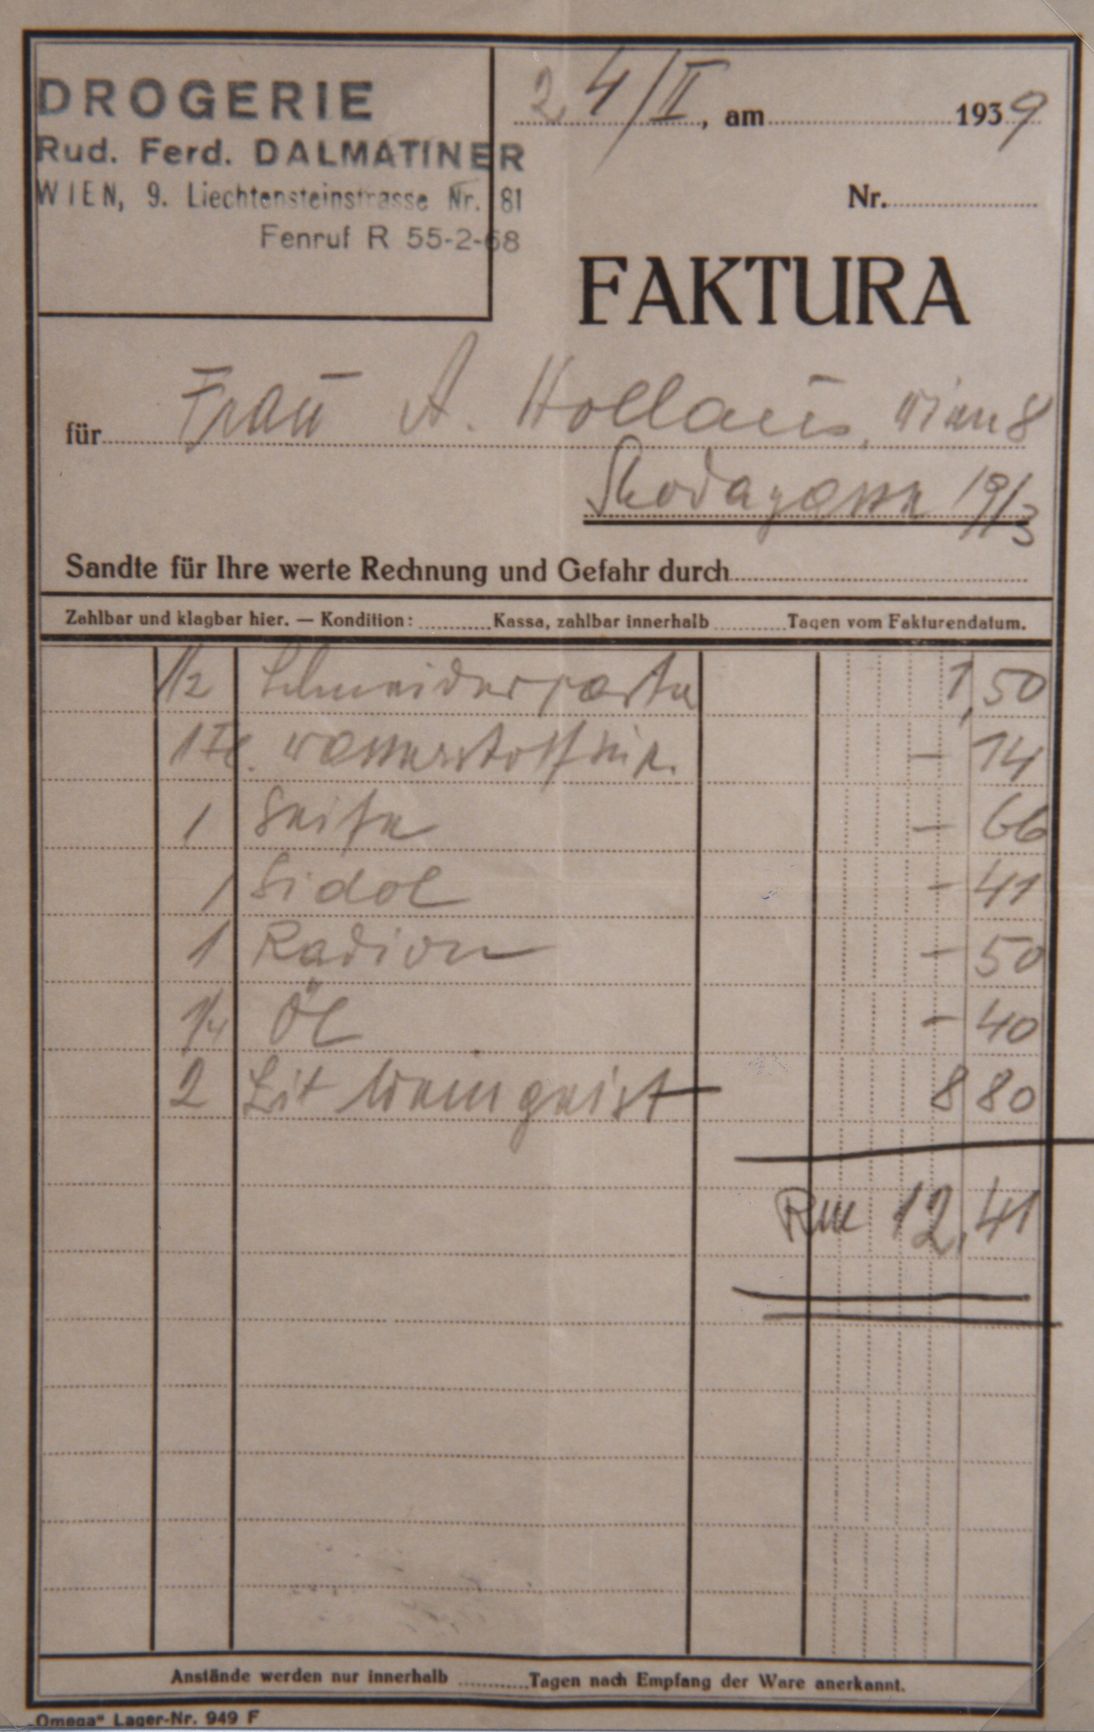 DROGERIE
Rud. Ferd. DALMATINER
WIEN, 9. Liechtensteinstrasse Nr. 81
Fenruf R 55-2-68
24/II, am 1939
Nr.
FAKTURA
für Frau A. Hollaus, Wien 8
Skodagasse 19/3
Sandte für Ihre werte Rechnung und Gefahr durch
Zahlbar und klagbar hier. — Kondition: Kassa, zahlbar innerhalb Tagen vom Fakturendatum.
1/2 Schneiderpasta 1,50
1 Fl. - 14
1 Seife - 66
1 Sidol - 41
1 Radion - 50
1/4 Öl - 40
2 Lit Weingeist 8 80
RM 12,41
Anstände werden nur innerhalb Tagen nach Empfang der Ware anerkannt.
„Omega" Lager-Nr. 949 F